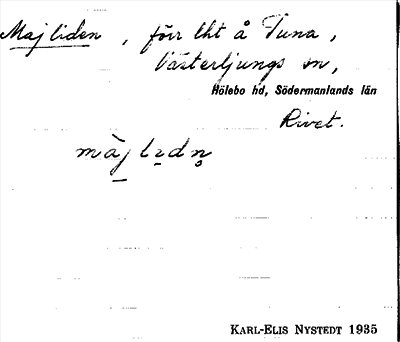 Majliden, förr lht å Tuna,
Västerljungs sn,
Hölebo hd, Södermanlands län
Rivet.
màj lịdn̥
KARL-ELIS NYSTEDT 1935